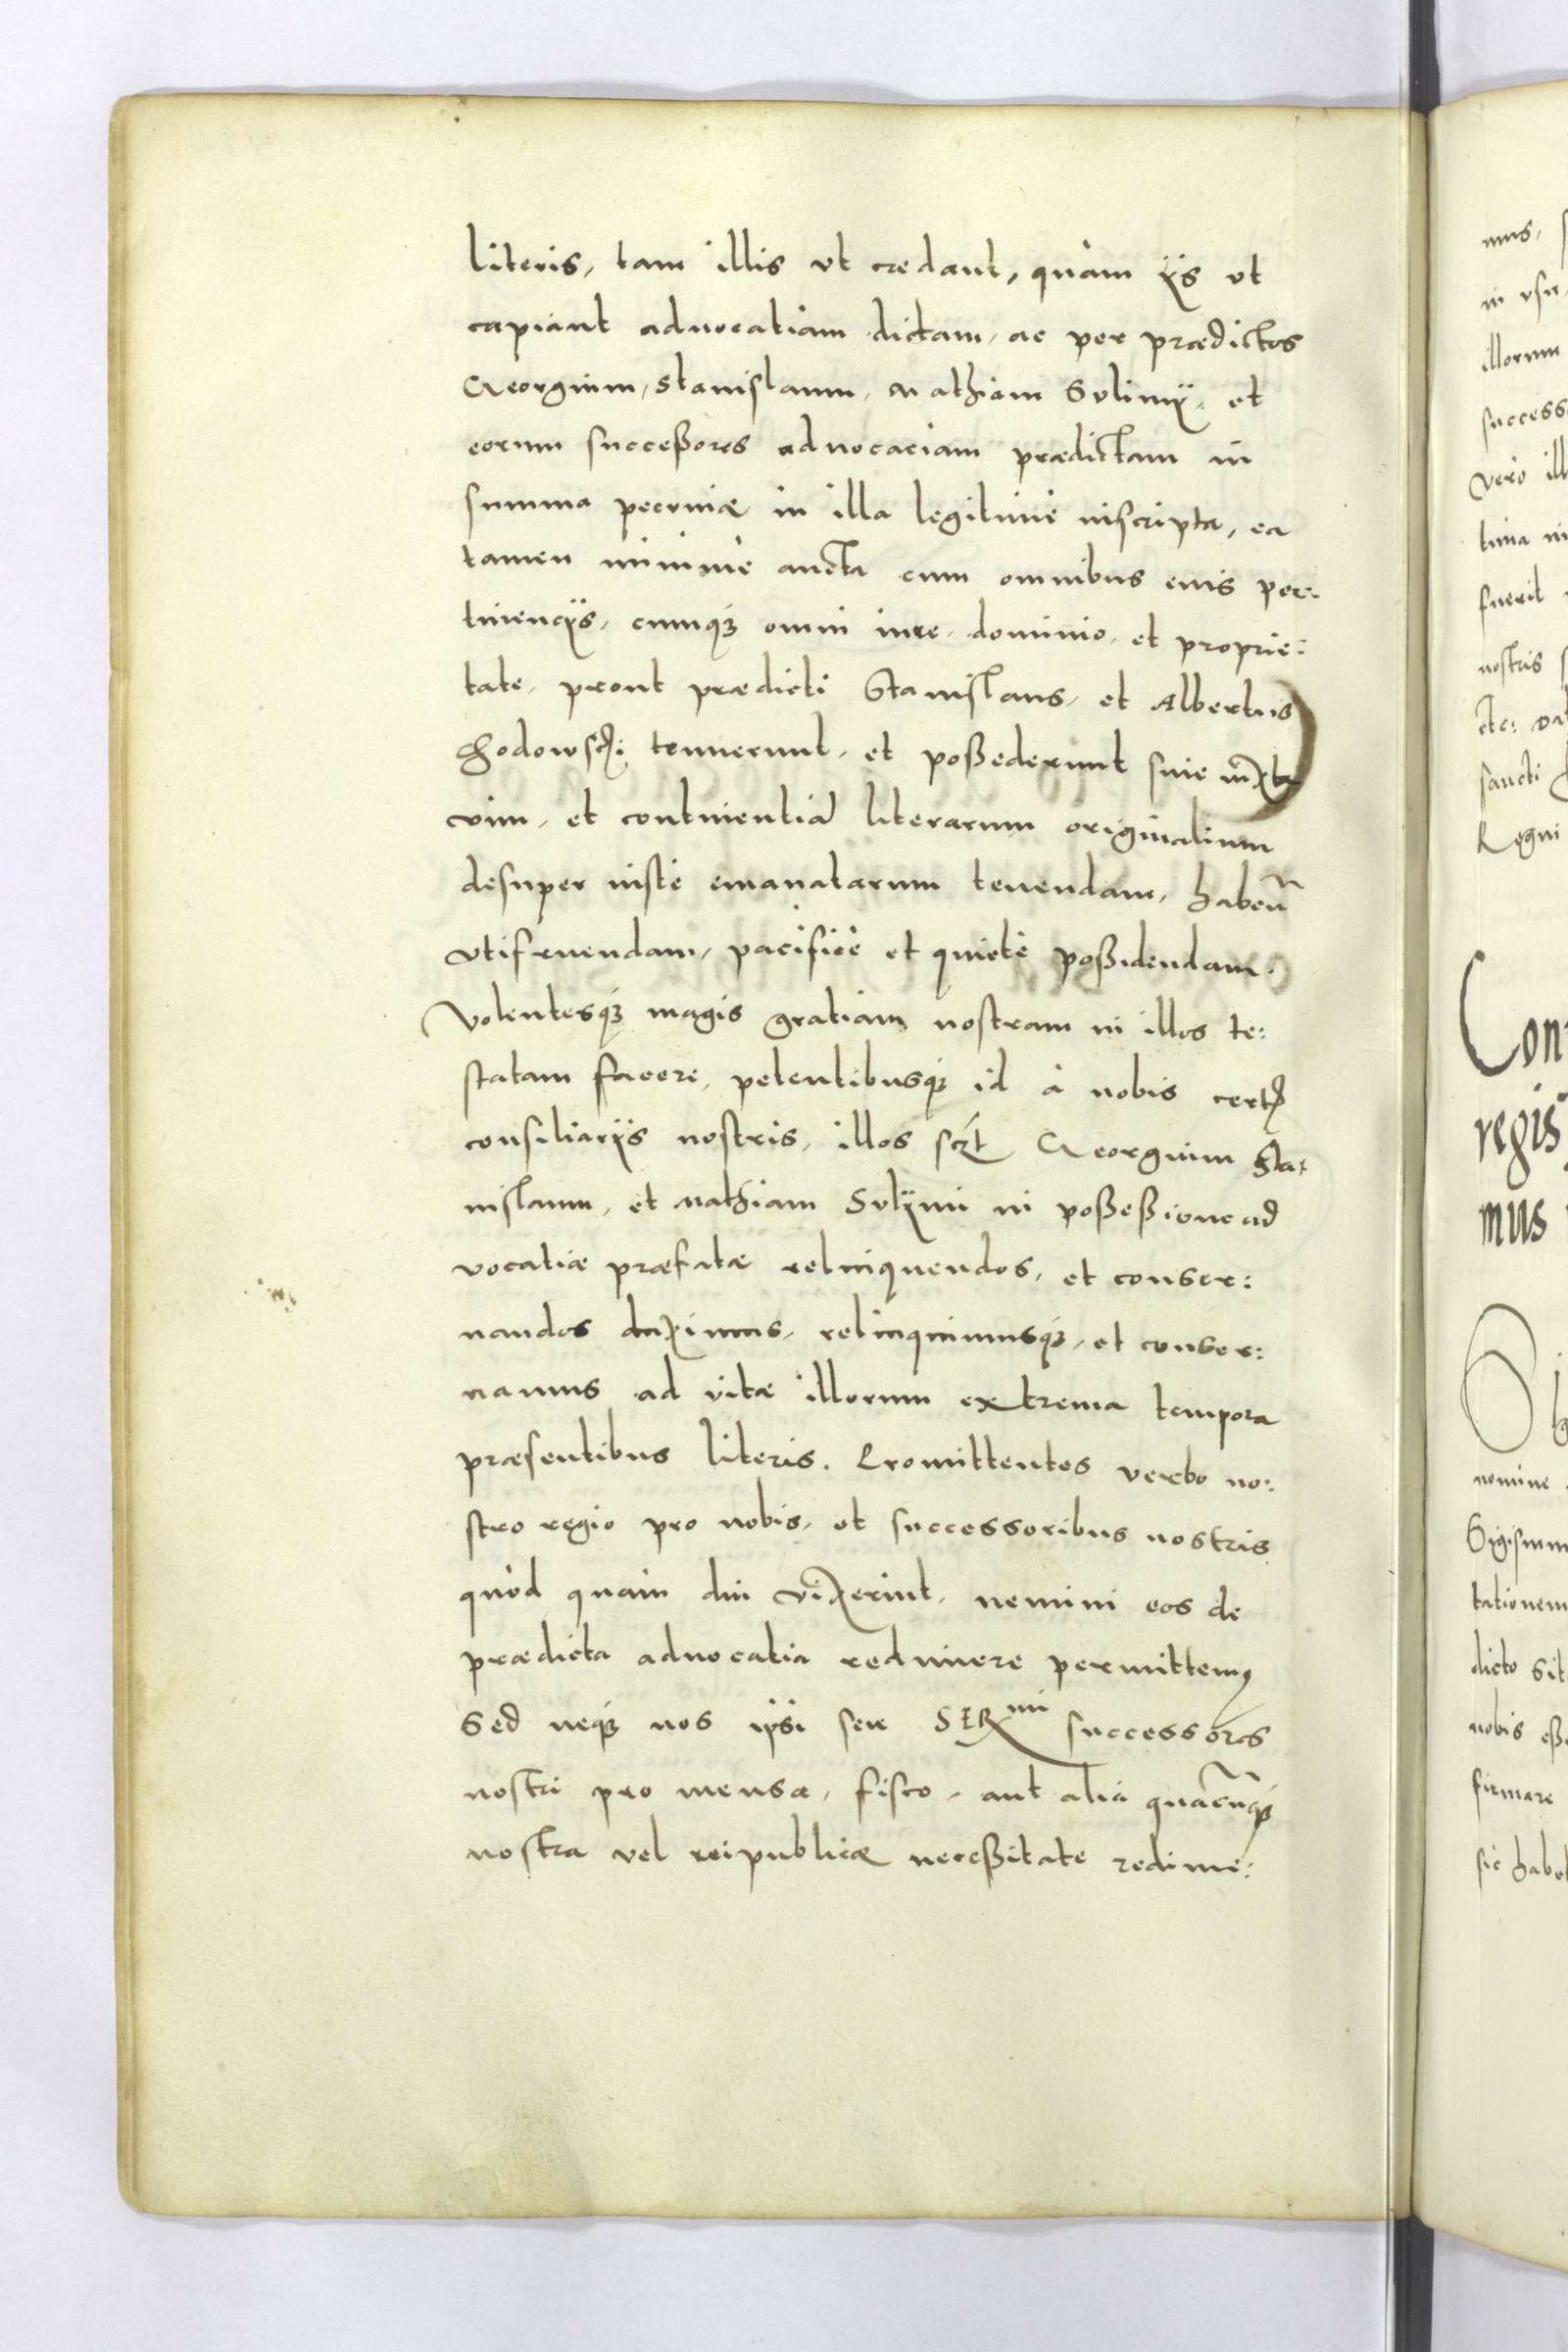 literis, tam illis vt credant, quàm ÿs vt
capiant aduocatiam dictam, ac per prædictos
Georgium, Stanislaum, Mathiam Sulimÿ, et
eorum succeßores aduocaciam prædictam in
summa pecuniæ in illa legitimè inscripta, ea
tamen minime aucta cum omnibus euis per:
tinencÿs, cumq3 omni iure, dominio, et proprie:
tate, prout prædicti Stanislaus, et Albertus
Chodowsci tenuerunt, et poßederunt siue iuxta
vim, et continentiã literarum originalium
desuper iustè emanatarum tenendam, habeñ
vtifruendam, pacificè et quietè poßidendam.
Volentesq3 magis gratiam nostram in illos te:
statam facere, petentibusq3 id à nobis certis
consiliarÿs nostris, illos sczt Georgium Sta:
nislaum, et Mathiam Sulÿmi in poßeßione ad
vocatiæ præfatæ relinquendos, et conser:
uandos duximus, relinquimusq3, et conser:
uamus ad vitæ illorum extrema tempora
præsentibus literis. Promittentes verbo no:
stro regio pro nobis, et successoribus nostris
quòd quam diu vixerint, nemini eos de
prædicta aduocatia redimere permittemus
Sed neq3 nos ipsi seu SERmi successores
nostri pro mensa, fisco, aut alia quacunq3
nostra vel reipublicæ neceßitate redime:
mus,
in vsu
illorum
success
vero ill
tima in
fuerit
nostris
etc:
sancti
Regni
Con
regis
mus
nomine
Sigismu
tationem
dicto sit
nobis eß
firmare
sic habe